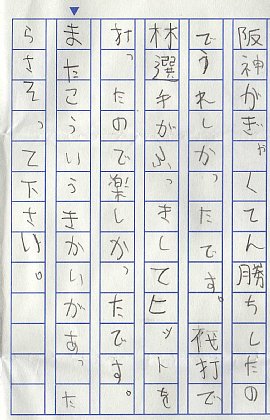 阪神がぎゃくてん勝ちしたの
でうれしかったです。代打で
林選手がふっきしてヒットを
打ったので楽しかったです。
またこういうきかいがあった
らさそって下さい。